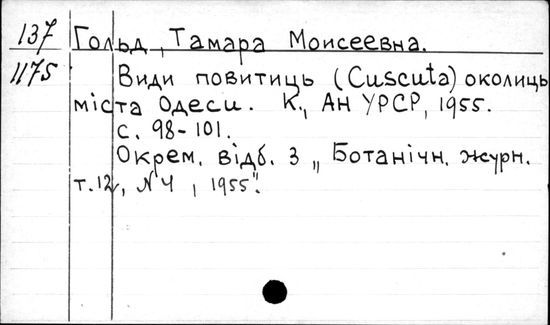 137 Гольд, Тамара Моисеевна.
1175 Види повитиць (Cuscuta) околиць
міста Одеси. К., АН УРСР, 1955.
с. 98-101.
Окрем. відб. з „Ботанічн. журн.
т.12, №4, 1955".